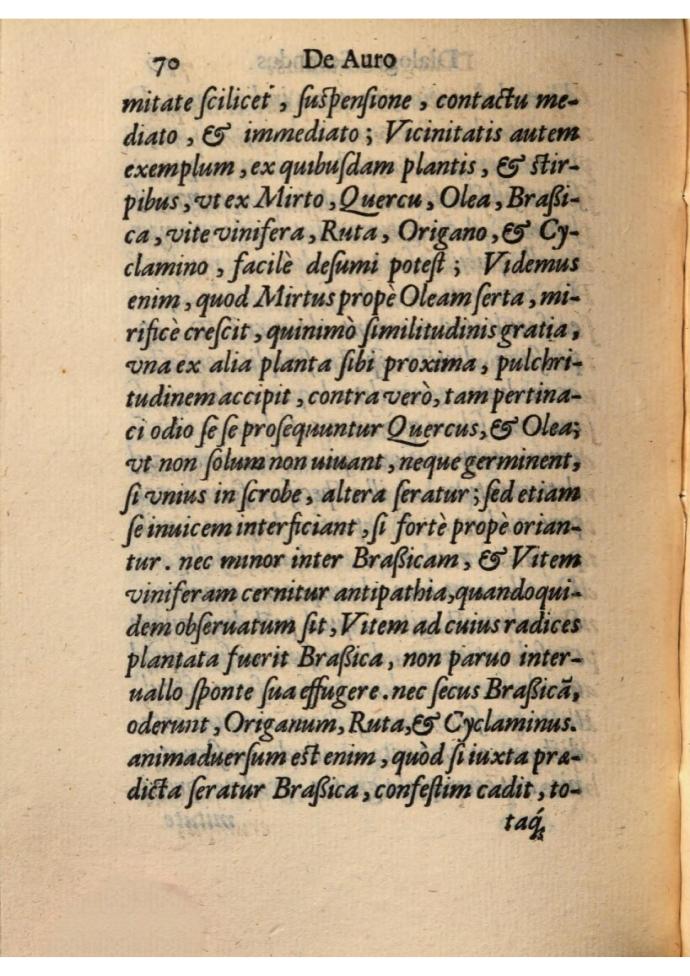 70 De Auro
mitate ſcilicet, ſuſpenſione, contactu me-
diato, & immediato; Vicinitatis autem
exemplum, ex quibuſdam plantis, & ſtir-
pibus, vt ex Mirto, Quercu, Olea, Braßi-
ca, vite vinifera, Ruta, Origano, & Cy-
clamino, facilè deſumi poteſt; Videmus
enim, quod Mirtus propè Oleam ſerta, mi-
rificè creſcit, quinimò ſimilitudinis gratia,
vna ex alia planta ſibi proxima, pulchri-
tudinem accipit, contra verò, tam pertina-
ci odio ſe ſe proſequuntur Quercus, & Olea;
vt non ſolum non uiuant, neque germinent,
ſi vnius in ſcrobe, altera ſeratur; ſed etiam
ſe inuicem interficiant, ſi fortè propè orian-
tur. nec minor inter Braßicam, & Vitem
viniferam cernitur antipathia, quandoqui-
dem obſeruatum ſit, Vitem ad cuius radices
plantata fuerit Braßica, non paruo inter-
uallo ſponte ſua effugere. nec ſecus Braßicã,
oderunt, Origanum, Ruta, & Cyclaminus.
animaduerſum eſt enim, quòd ſi iuxta præ-
dicta ſeratur Braßica, confeſtim cadit, to-
taq́;